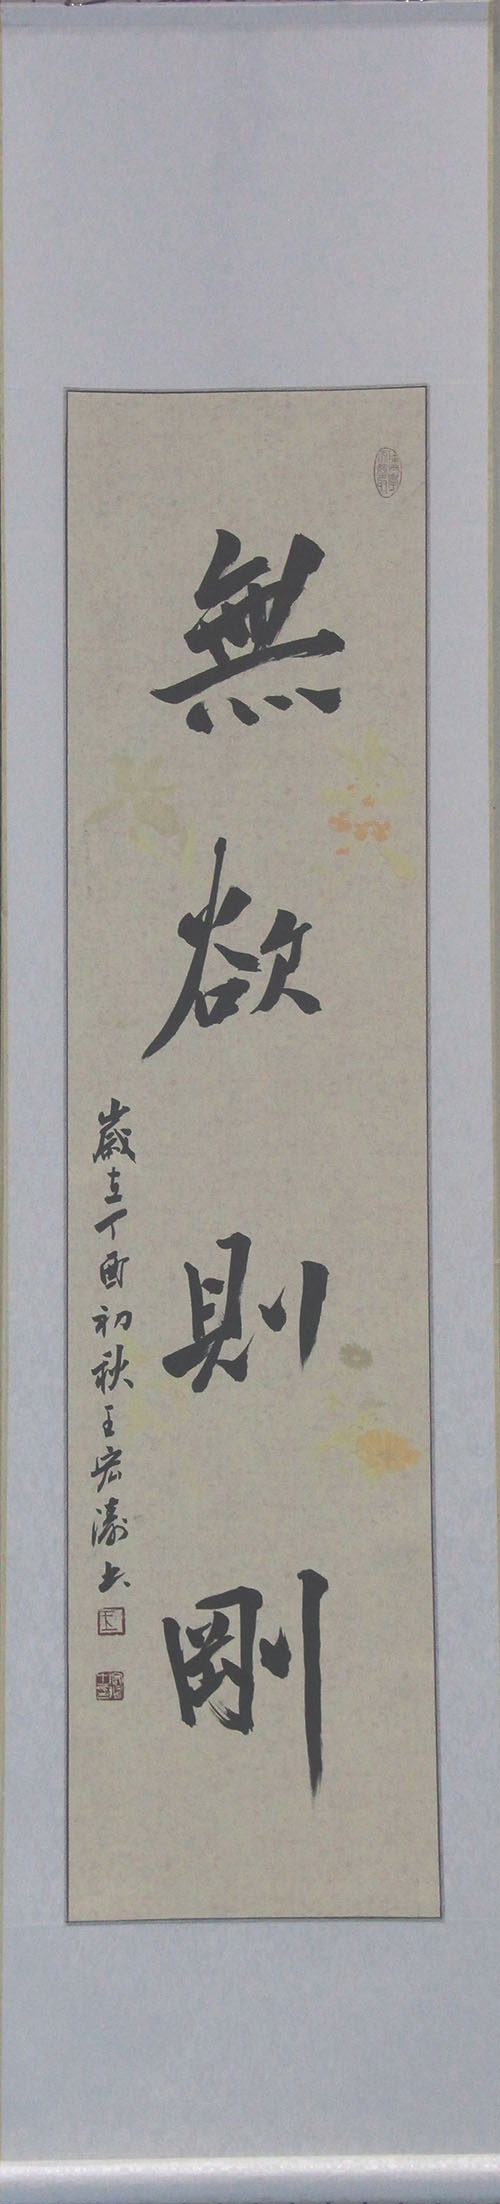 無欲則剛
歲在丁酉初秋王宏濤書